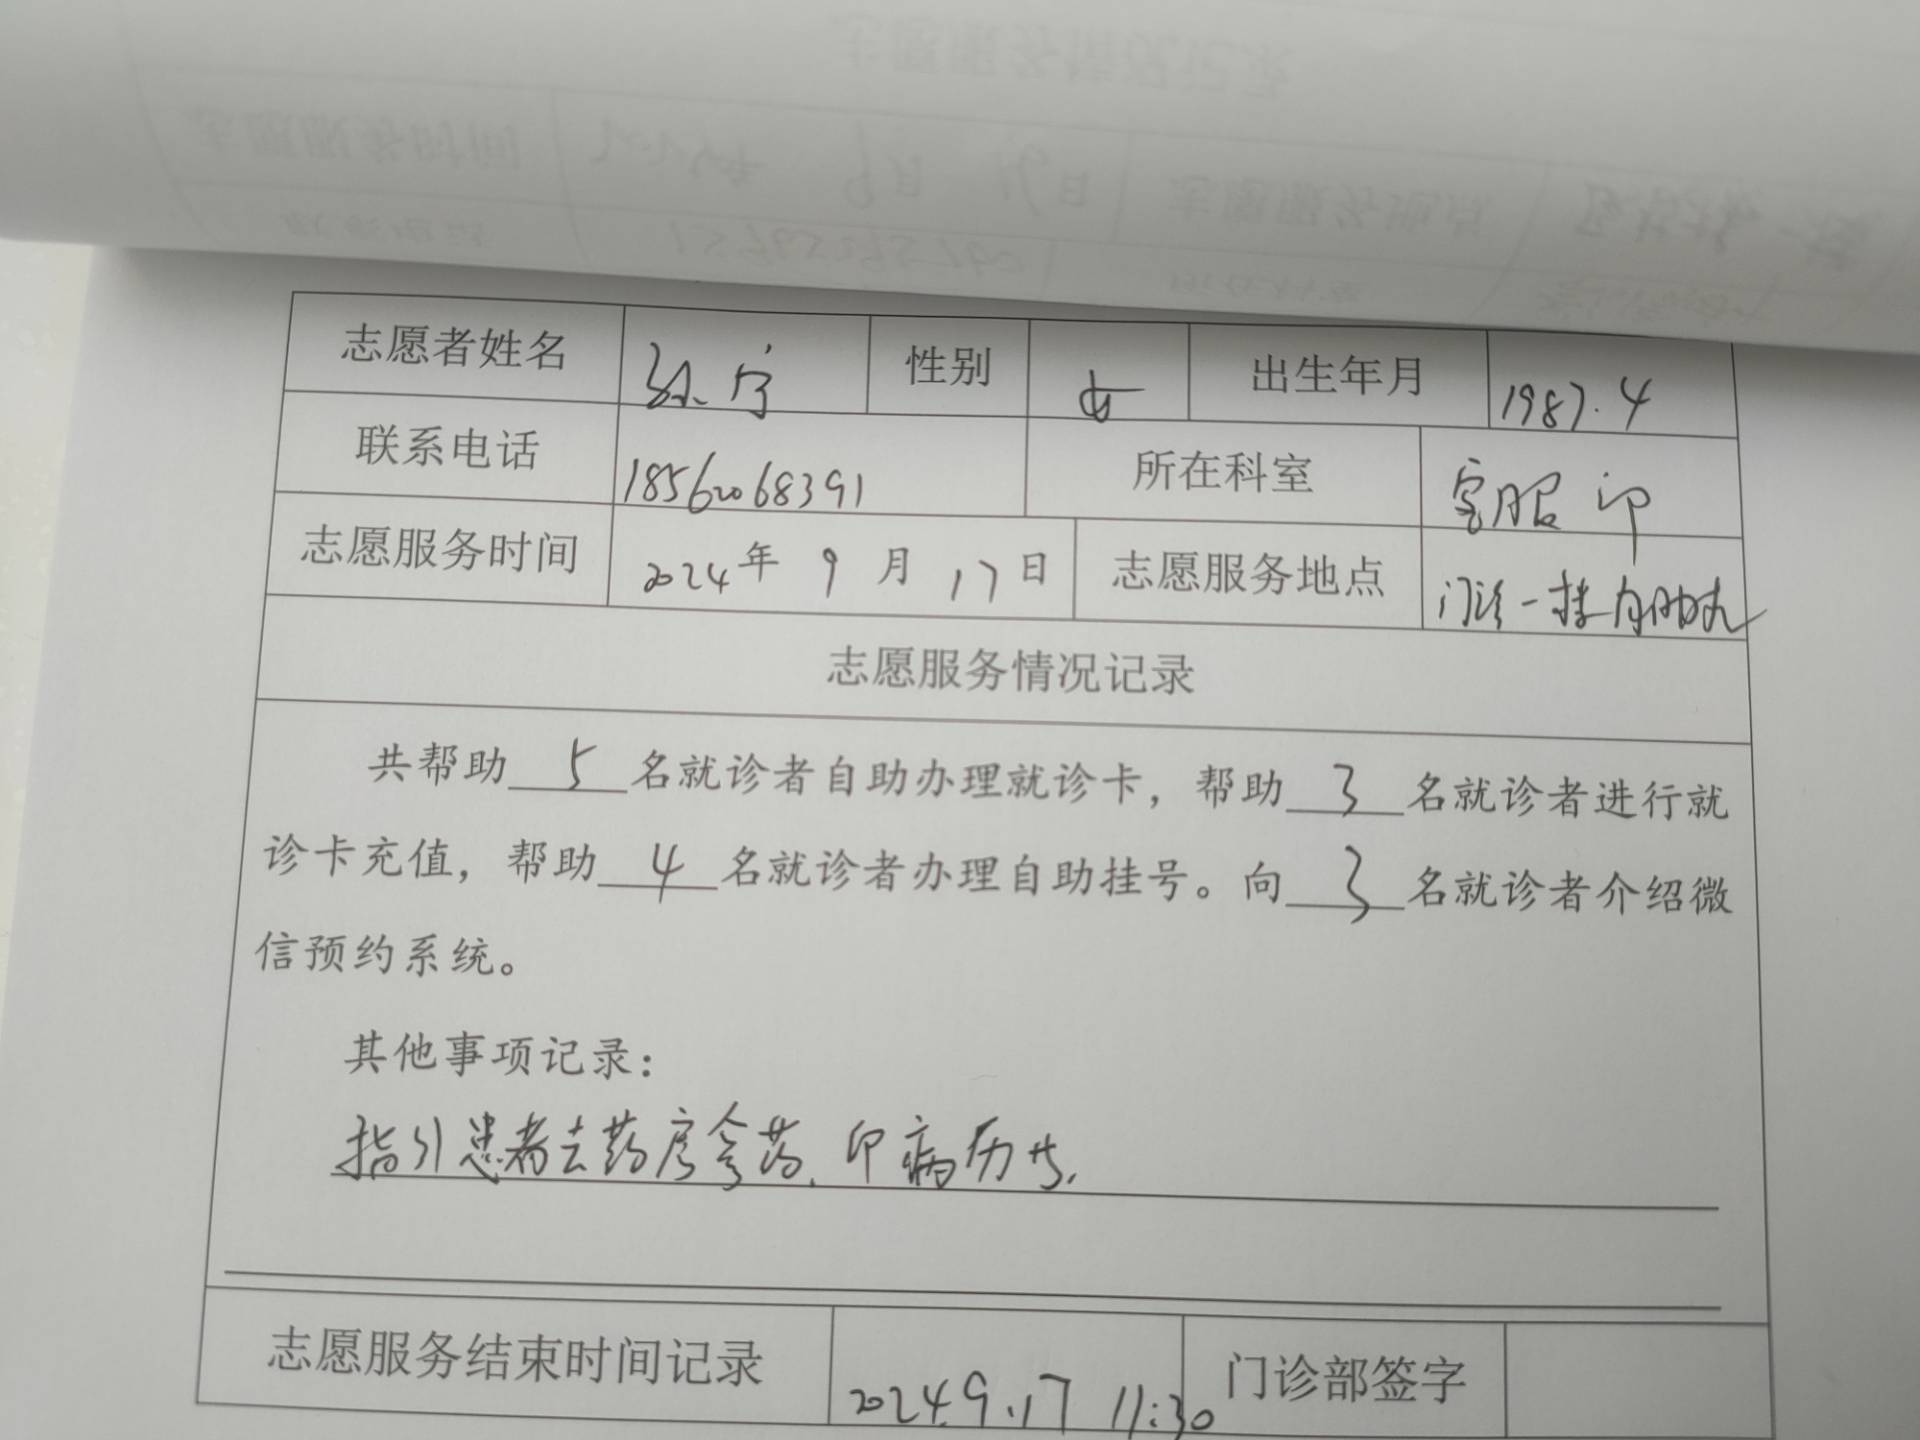 志愿者姓名 孙宁 性别 女 出生年月 1987.4
联系电话 18562068391 所在科室 客服部
志愿服务时间 2024年 9月 17日 志愿服务地点 门诊一楼自助机
志愿服务情况记录
共帮助 5 名就诊者自助办理就诊卡，帮助 3 名就诊者进行就
诊卡充值，帮助 4 名就诊者办理自助挂号。向 3 名就诊者介绍微
信预约系统。
其他事项记录：
指引患者去药房拿药、印病历等.
志愿服务结束时间记录 2024.9.17 11:30 门诊部签字